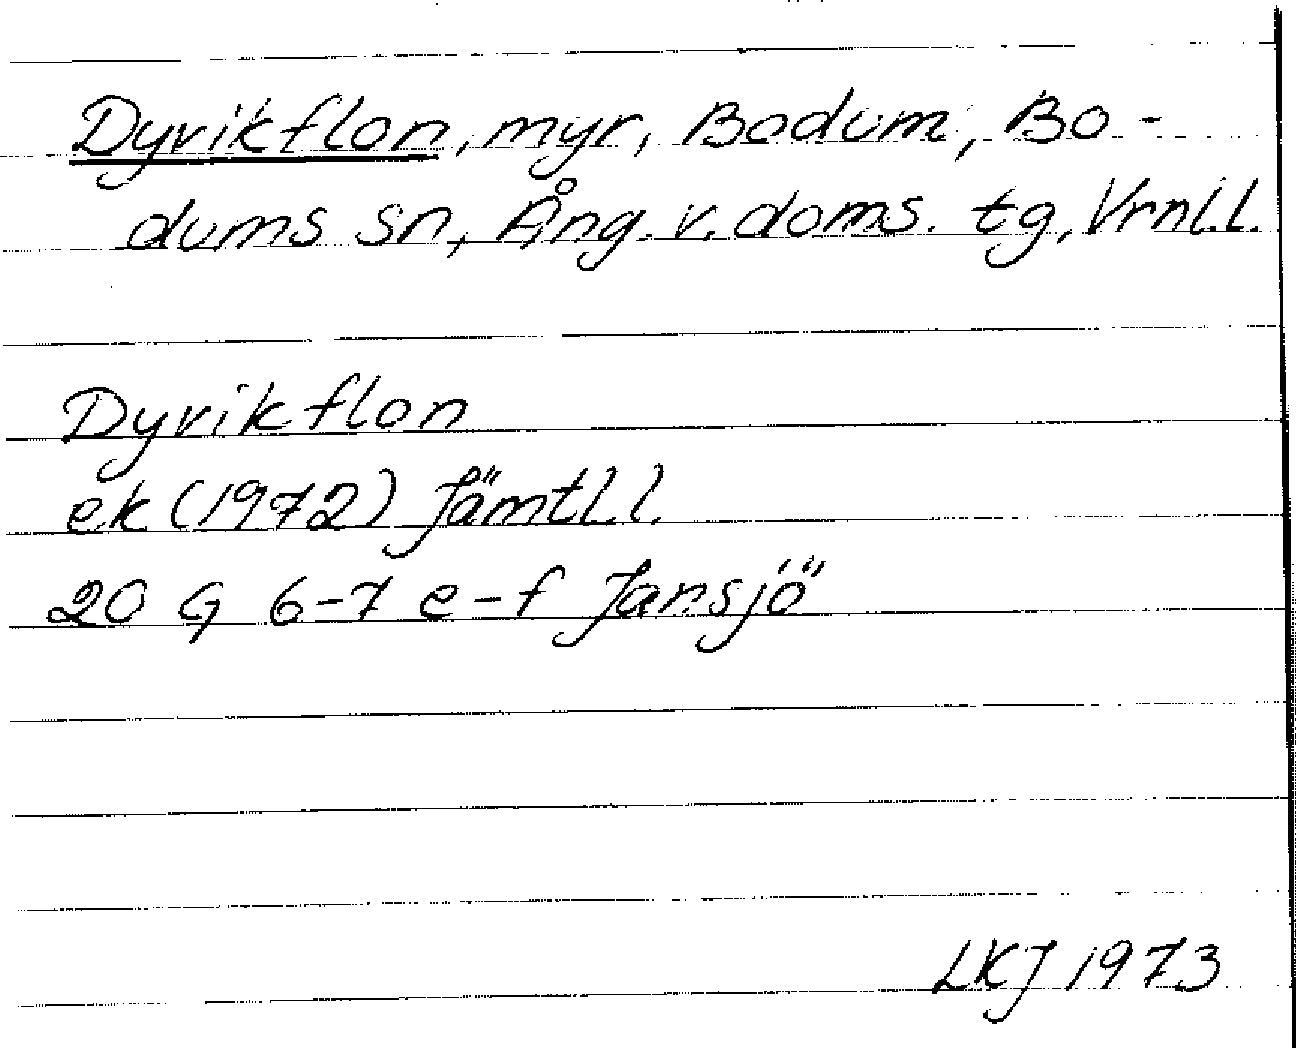 Dyvikflon, myr, Bodum, Bo-
dums sn, Ång. v. doms. tg, Vrnl.l.
Dyvikflon
ek (1972) Jämtl.l.
20 G 6-7 e-f Jansjö
LKJ 1973